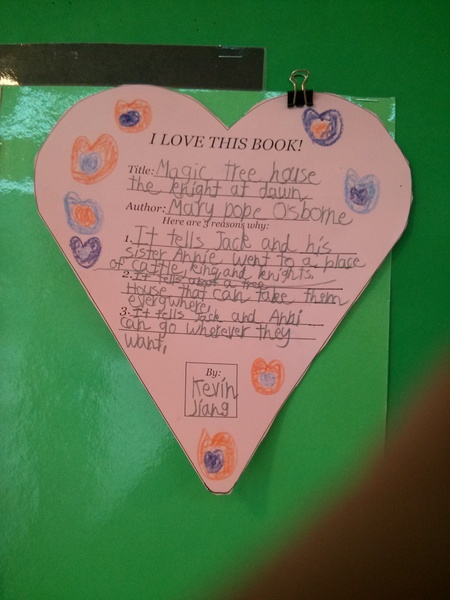 I LOVE THIS BOOK!
Title: Magic tree house
the knight at dawn
Author: Mary pope Osborne
Here are 3 reasons why:
1. It tells Jack and his
sister Annie went to a place
of castle, king and knights.
2. It tells about a tree
House that can take them
everywhere,
3. It tells Jack and Anni
can go wherever they
want,
By:
Kevin
Jiang